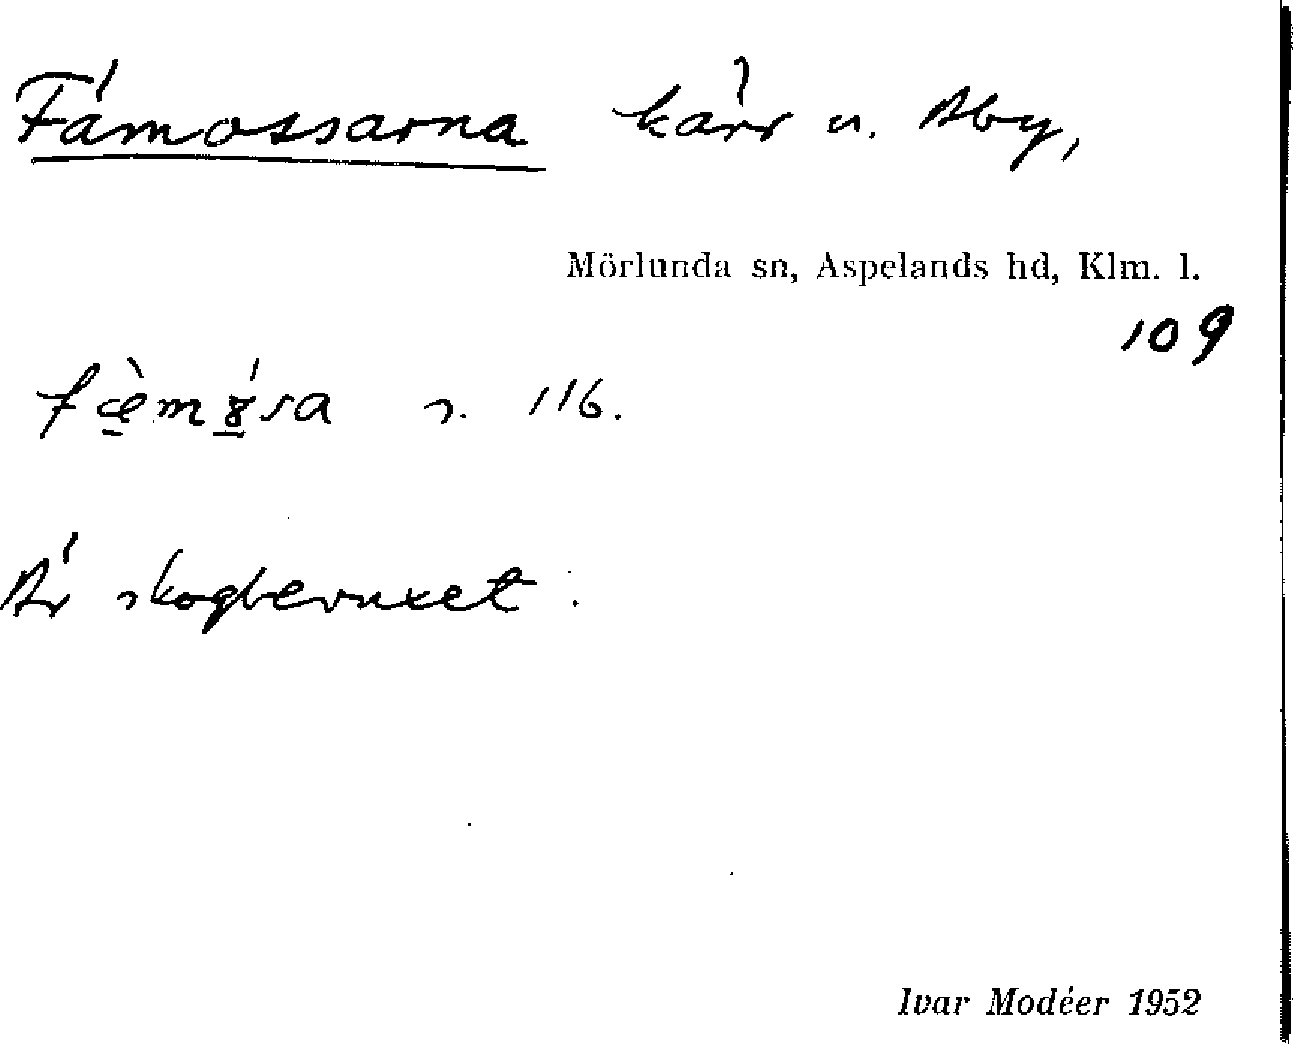 Fämossarna kärr u. Åby,
Mörlunda sn, Aspelands hd, Klm. l.
109
fæ̀mɤ́sa s. 116.
Är skogbevuxet.
Ivar Modéer 1952